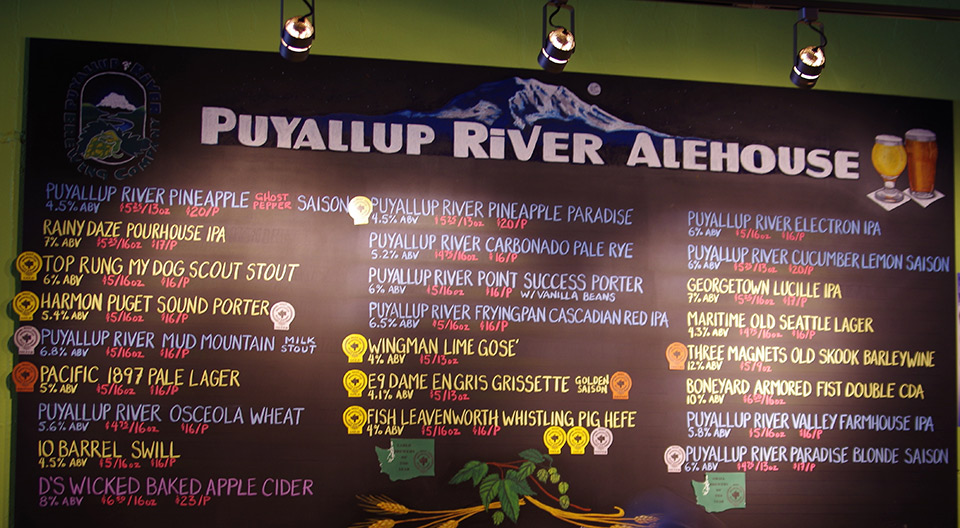 PUYALLUP RIVER ALEHOUSE
PUYALLUP RIVER PINEAPPLE GHOST PEPPER SAISON
4.5% ABV $5⁵⁰/13oz $20/P
RAINY DAZE POURHOUSE IPA
7% ABV $5⁵⁰/16oz $17/P
TOP RUNG MY DOG SCOUT STOUT
6% ABV $5/16oz $16/P
HARMON PUGET SOUND PORTER
5.4% ABV $5/16oz $16/P
PUYALLUP RIVER MUD MOUNTAIN MILK STOUT
6.8% ABV $5/16oz $16/P
PACIFIC 1897 PALE LAGER
5% ABV $5/16oz $16/P
PUYALLUP RIVER OSCEOLA WHEAT
5.6% ABV /16oz $16/P
10 BARREL SWILL
4.5% ABV $5/16oz $16/P
D'S WICKED BAKED APPLE CIDER
8% ABV /16oz $23/P
PUYALLUP RIVER PINEAPPLE PARADISE
4.5% ABV /13oz $20/P
PUYALLUP RIVER CARBONADO PALE RYE
5.2% ABV /16oz $16/P
PUYALLUP RIVER POINT SUCCESS PORTER
6% ABV $5/16oz $16/P W/VANILLA BEANS
PUYALLUP RIVER FRYINGPAN CASCADIAN RED IPA
6.5% ABV $5/16oz $16/P
WINGMAN LIME GOSE'
4% ABV $5/13oz
E9 DAME EN GRIS GRISSETTE GOLDEN SAISON
4.1% ABV $5/13oz
FISH LEAVENWORTH WHISTLING PIG HEFE
4% ABV $5/16oz $16/P
PUYALLUP RIVER ELECTRON IPA
6% ABV $5/16oz $16/P
PUYALLUP RIVER CUCUMBER LEMON SAISON
6% ABV /13oz $20/P
GEORGETOWN LUCILLE IPA
7% ABV /16oz $17/P
MARITIME OLD SEATTLE LAGER
4.3% ABV /16oz $16/P
THREE MAGNETS OLD SKOOK BARLEYWINE
12% ABV $5/9oz
BONEYARD ARMORED FIST DOUBLE CDA
10% ABV /16oz
PUYALLUP RIVER VALLEY FARMHOUSE IPA
5.8% ABV $5/16oz $16/P
PUYALLUP RIVER PARADISE BLONDE SAISON
6% ABV /13oz $17/P